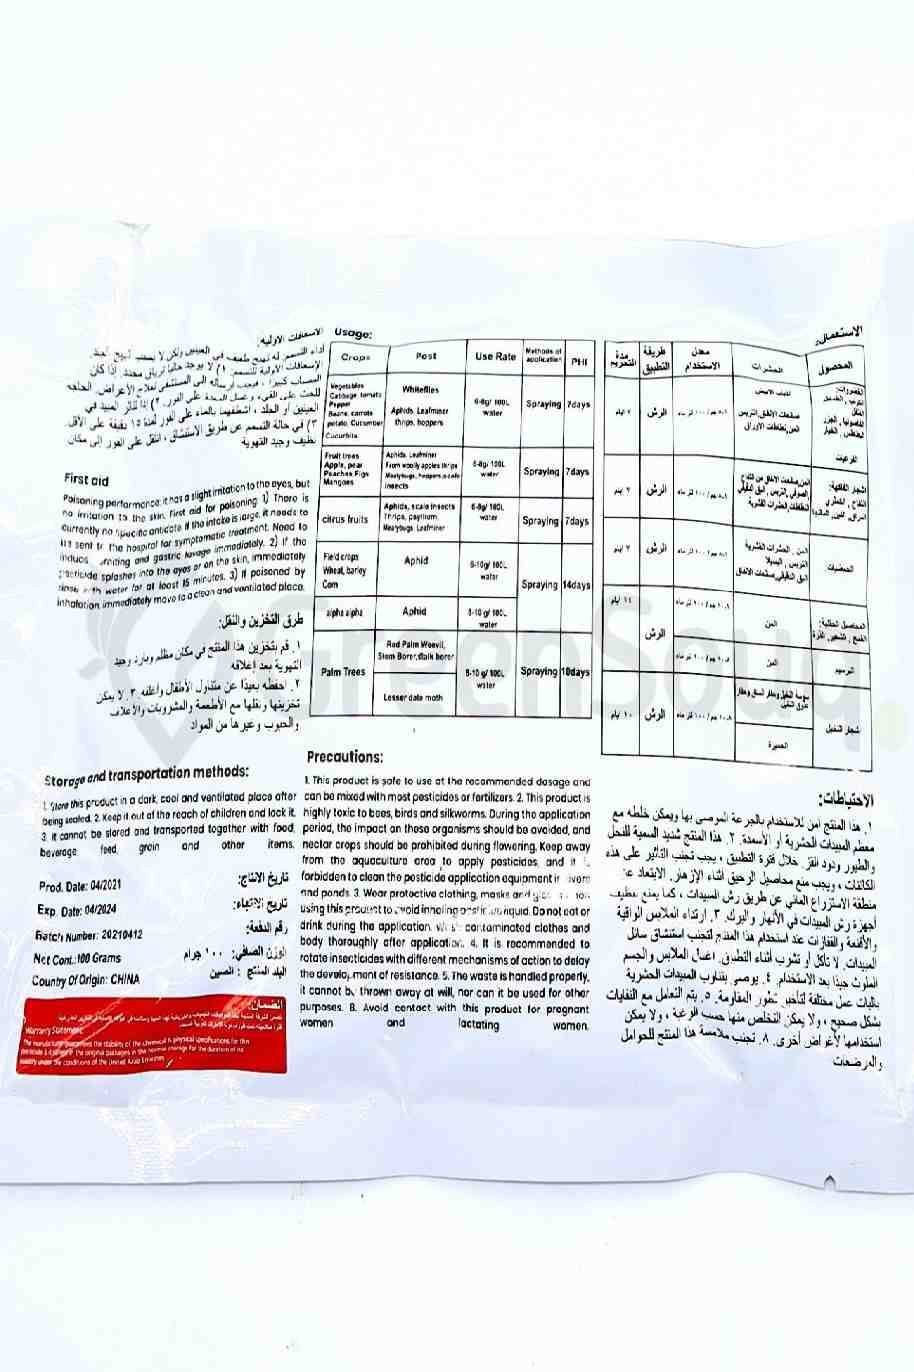 الاسعافات الاولية:
الإسعافات الأولية للتسمم:
بالماء على الفور لمدة ١٥ دقيقة على الأقل
٣) في حالة التسمم عن طريق الاستنشاق ، انتقل على الفور إلى مكان
نظيف وجيد التهوية
First aid
Poisoning performance: it has a slight irritation to the eyes, but
no irritation to the skin. First aid for poisoning 1) There is
currently no specific antidote. If the intake is large, it needs to
be sent to the hospital for symptomatic treatment. Need to
induce vomiting and gastric lavage immediately. 2) If the
pesticide splashes into the eyes or on the skin, immediately
rinse with water for at least 15 minutes. 3) If poisoned by
inhalation, immediately move to a clean and ventilated place.
طرق التخزين والنقل:
١. قم بتخزين هذا المنتج في مكان مظلم وبارد وجيد
التهوية بعد اغلاقه
٢. احفظه بعيدًا عن متناول الأطفال وأغلقه. ٣. لا يمكن
تخزينها ونقلها مع الأطعمة والمشروبات والأعلاف
والحبوب وغيرها من المواد
Storage and transportation methods:
1. Store this product in a dark, cool and ventilated place after
being sealed. 2. Keep it out of the reach of children and lock it.
3. It cannot be stored and transported together with food,
beverage feed, grain and other items.
Prod. Date: 04/2021 تاريخ الانتاج:
Exp. Date: 04/2024 تاريخ الانتهاء:
Batch Number: 20210412 رقم الدفعة:
Net Cont.:100 Grams الوزن الصافي: ١٠٠ جرام
Country Of Origin: CHINA البلد المنتج : الصين
الضمان:
Warranty Statement:
The manufacturer guarantees the stability of the chemical & physical specifications for this
pesticide & it's in the original packages in the normal storage for the duration of its
validity under the conditions of the United Arab Emirates
Usage:
Crops Pest Use Rate Methods of application PHI
Vegetables
Cabbage, tomato
Pepper
Beans, carrots
potato, Cucumber
Cucurbits
Whiteflies
Aphids, Leafminer
thrips, hoppers
6-8g/ 100L
water
Spraying 7days
Fruit trees
Apple, pear
Peaches Figs
Mangoes
Aphids, Leafminer
From woolly apples thrips
Mealybugs, hoppers, scale
insects
6-8g/ 100L
water
Spraying 7days
citrus fruits
Aphids, scale insects
Thrips, psyllium,
Mealybugs, Leafminer
6-8g/ 100L
water
Spraying 7days
Field crops
Wheat, barley
Corn
Aphid
8-10g/ 100L
water
Spraying 14days
alpha alpha
Aphid
8-10 g/ 100L
water
Palm Trees
Red Palm Weevil,
Stem Borer, stalk borer
Lesser date moth
8-10 g/ 100L
water
Spraying 10days
Precautions:
1. This product is safe to use at the recommended dosage and
can be mixed with most pesticides or fertilizers. 2. This product is
highly toxic to bees, birds and silkworms. During the application
period, the impact on these organisms should be avoided, and
nectar crops should be prohibited during flowering. Keep away
from the aquaculture area to apply pesticides, and it is
forbidden to clean the pesticide application equipment in rivers
and ponds. 3. Wear protective clothing, masks and
using this product to avoid inhaling pesticide liquid. Do not eat or
drink during the application. Wash contaminated clothes and
body thoroughly after application. 4. It is recommended to
rotate insecticides with different mechanisms of action to delay
the development of resistance. 5. The waste is handled properly,
it cannot be thrown away at will, nor can it be used for other
purposes. 8. Avoid contact with this product for pregnant
women and lactating women.
الاستعمال:
المحصول الحشرات معدل الاستخدام طريقة التطبيق مدة التحريم
الخضروات:
الذباب الابيض
الرش
القرعيات
أشجار الفاكهة:
الرش
الحمضيات
المن ، الحشرات القشرية
الرش
المحاصيل الحقلية:
القمح ، الشعير، الذرة
المن
الرش
١٤ ايام
البرسيم
المن
أشجار النخيل
الحميرة
الرش
١٠ ايام
الاحتياطات:
١. هذا المنتج آمن للاستخدام بالجرعة الموصى بها ويمكن خلطه مع
معظم المبيدات الحشرية أو الأسمدة. ٢. هذا المنتج شديد السمية للنحل
والطيور ودود القز. خلال فترة التطبيق ، يجب تجنب التأثير على هذه
الكائنات ، ويجب منع محاصيل الرحيق أثناء الإزهار. الابتعاد عن
منطقة الاستزراع المائي عن طريق رش المبيدات ، كما يمنع تنظيف
أجهزة رش المبيدات في الأنهار والبرك. ٣. ارتداء الملابس الواقية
والأقنعة والقفازات عند استخدام هذا المنتج لتجنب استنشاق سائل
المبيدات. لا تأكل أو تشرب أثناء التطبيق. اغسل الملابس والجسم
الملوث جيدًا بعد الاستخدام. ٤. يوصى بتناوب المبيدات الحشرية
بآليات عمل مختلفة لتأخير تطور المقاومة. ٥. يتم التعامل مع النفايات
بشكل صحيح ، ولا يمكن التخلص منها حسب الرغبة ، ولا يمكن
استخدامها لأغراض أخرى. ٨. تجنب ملامسة هذا المنتج للحوامل
والمرضعات
GreenSouq